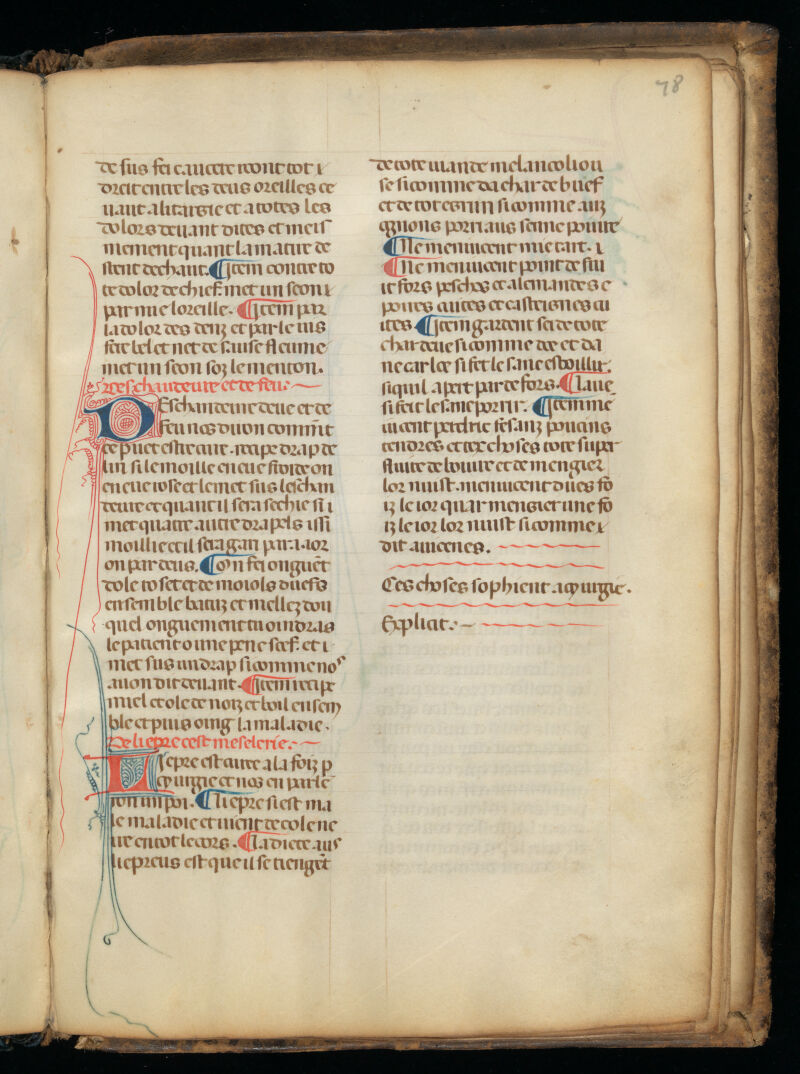 78
de sus fei cautere roont tot i
droit entre les deus oreilles ce
uaut a litargie et a totes les
dolors deuant dites et meis
mement quant la matire de
stent de chaut. ¶ Item contre to
te dolor de chief. met un seon i
par mie loreille. ¶ Item par
la dolor des denz et par le uis
fere bel et net de sause fleume
met un seon soz le menton.
De eschaudeure et de feu.
DEschaudeure deue et de
feu nos diron comment
de puet estre cure. recipe drap de
lin si le moille en eue froide ou
en eue rose et le met sus leschau
deure et quant il sera sechie si i
met quatre autre drapels issi
moillie et il sera gari par .i. ior
ou par deus. ¶ Con fei onguent
dole roset et de moiols duefs
ensemble batuz et mellez dou
quel onguement tu oindras
le patient o une pene soef. et i
met sus un drap si comme nos
auon dit deuant. ¶ Item recipe
miel et ole de noiz et boil ensem
ble et puis oing la maladie.
De liepre cest meselerie.
LIepre est curee a la foiz p
cyrurgie et nos en parle
ron un poi. ¶ Liepre si est ma
le maladie et uient de cole ne
ire en tot le cors. ¶ La diete aus
liepreus est que il se tiengent
de tote uiande melancoliou
se si comme da char de buef
et de tot esgrun si comme auz
ognons porriaus senne poiure
¶ Ne meniucent mie tart. i
¶ Ne meniucent point de fru
it fors pesches et alemandes e
poires cuites et casteignes cu
ites. ¶ Item gardent sei de tote
char deue si comme dee et da
ne car lee si fet le sanc esboillir.
si quil apert par defors. ¶ Laue
si feit le sanc porrir. ¶ Item me
iucent perdriz fesanz poucins
tendres et tex choses tote super
fluite de boiure et de mengier
lor nuist. meniucent dues fo
iz le ior quar mengier une fo
iz le ior lor nuist si comme
dit auicenes.
Ces choses sophient a cyrurgie.
Explicit.